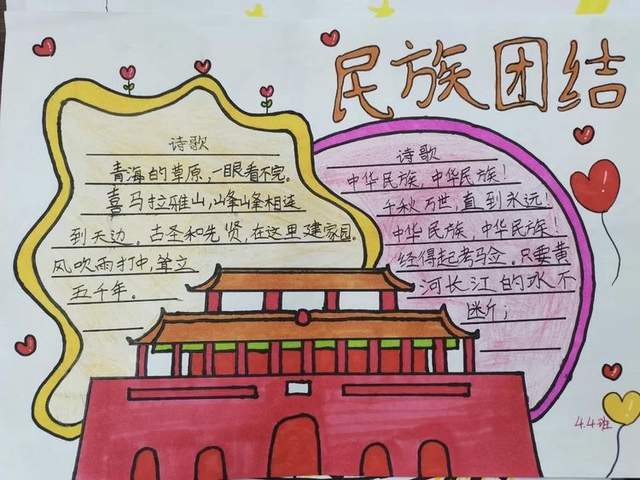 民族团结
诗歌
青海的草原，一眼看不完。
喜马拉雅山，峰峰相连
到天边，古圣和先贤，在这里建家园。
风吹雨打中，耸立
五千年。
诗歌
中华民族，中华民族！
千秋万世，直到永远！
中华民族，中华民族！
经得起考马佥。只要黄
河长江的水不
断；
4.4班